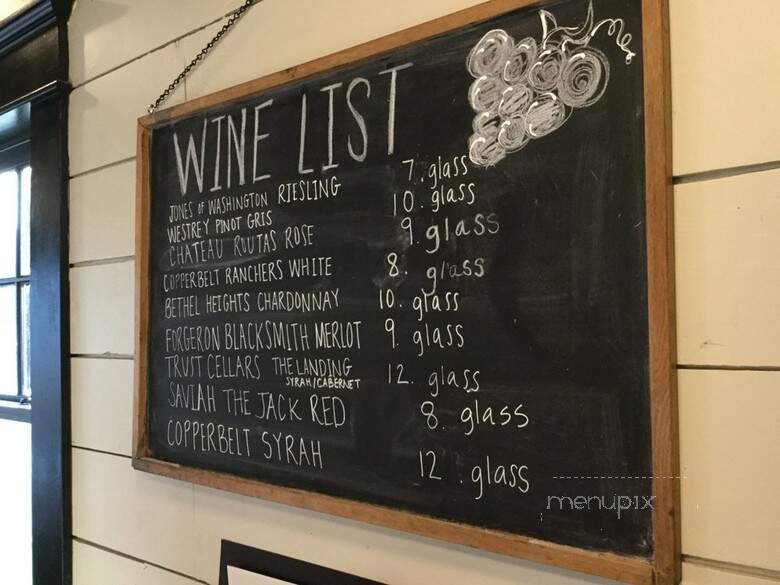 WINE LIST
JONES OF WASHINGTON RIESLING 7. glass
WESTREY PINOT GRIS 10. glass
CHATEAU ROUTAS ROSE 9. glass
COPPERBELT RANCHERS WHITE 8. glass
BETHEL HEIGHTS CHARDONNAY 10. glass
FORGERON BLACKSMITH MERLOT 9. glass
TRUST CELLARS THE LANDING 12. glass
SYRAH/CABERNET
SAVIAH THE JACK RED 8. glass
COPPERBELT SYRAH 12. glass
menupix